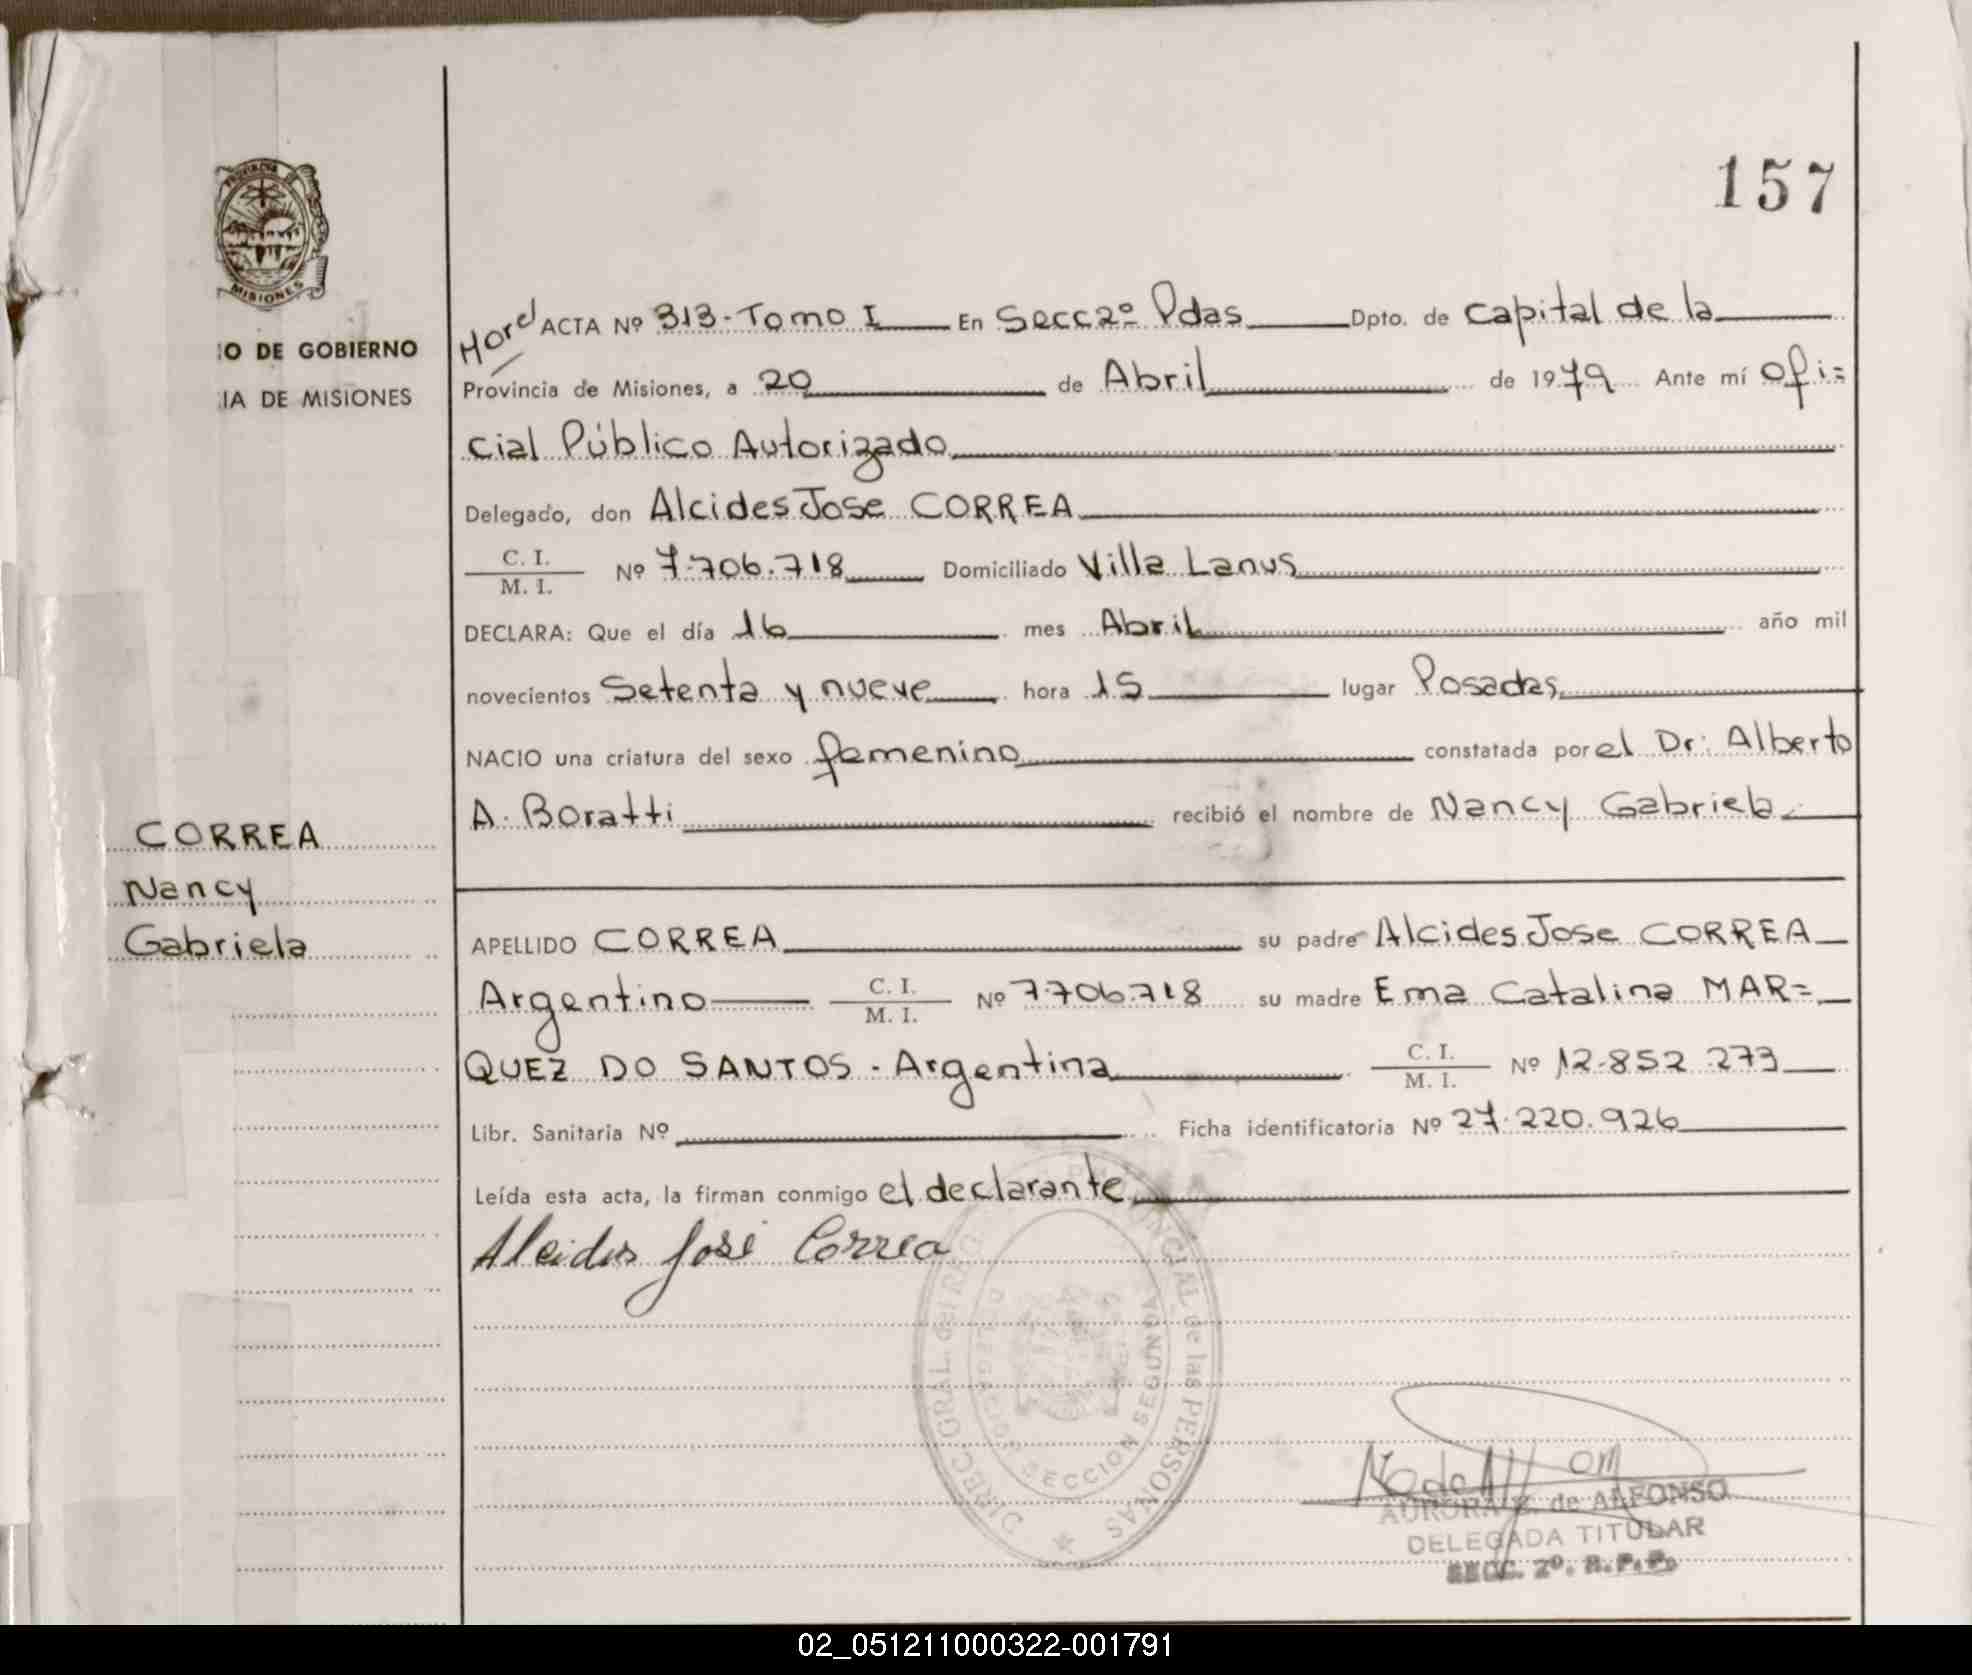 157
PROVINCIA DE
MISIONES
O DE GOBIERNO
IA DE MISIONES
ACTA Nº 313 - Tomo I En Secc 2º Pdas Dpto. de Capital de la
Provincia de Misiones, a 20 de Abril de 1979 Ante mí Ofi=
cial Público Autorizado
Delegado, don Alcides Jose CORREA
C. I.
M. I. Nº 7.706.718 Domiciliado Villa Lanus
DECLARA: Que el día 16 mes Abril año mil
novecientos Setenta y nueve hora 15 lugar Posadas
NACIO una criatura del sexo femenino constatada por el Dr: Alberto
A. Boratti recibió el nombre de Nancy Gabriela
CORREA
Nancy
Gabriela
APELLIDO CORREA su padre Alcides Jose CORREA
Argentino C. I.
M. I. Nº 7.706.718 su madre Ema Catalina MAR=
QUEZ DO SANTOS - Argentina C. I.
M. I. Nº 12.852.273
Libr. Sanitaria Nº Ficha identificatoria Nº 27.220.926
Leída esta acta, la firman conmigo el declarante
Alcides José Correa
DELEGACION SECCION SEGUNDA
de ALFONSO
DELEGADA TITULAR
SECC. 2º. R.P.P.
02_051211000322-001791